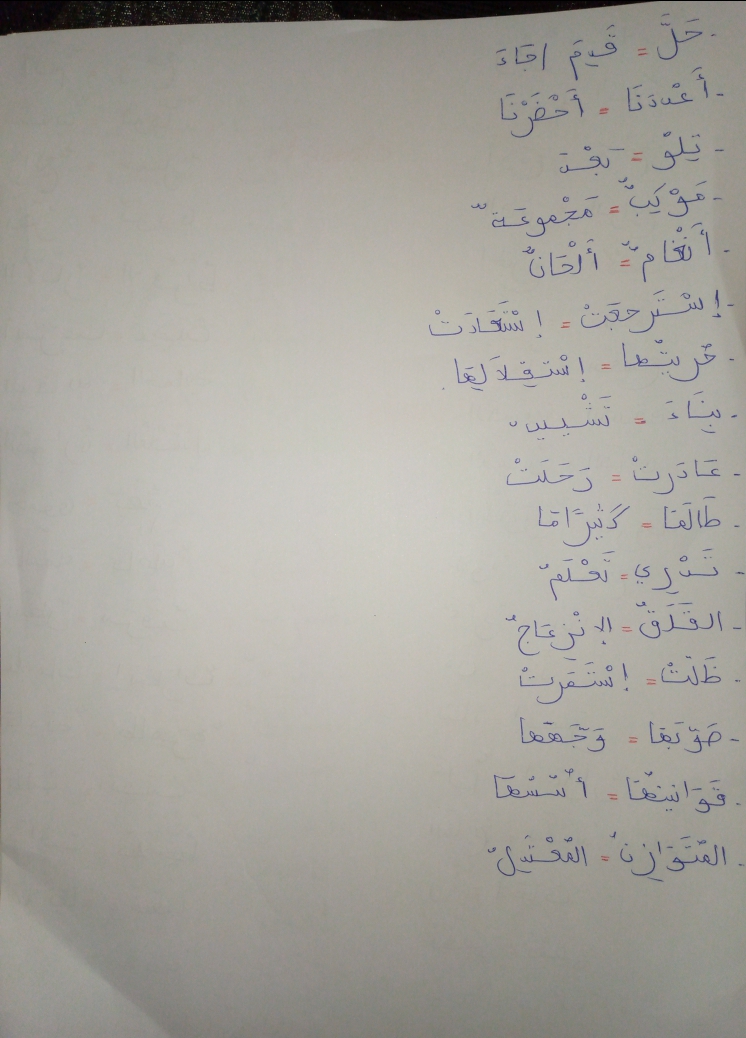 - حَلَّ = قَدِمَ / جَاءَ
- أَعْدَدْنَا = أَحْضَرْنَا
- تِلْوَ = بَعْدَ
- مَوْكِبٌ = مَجْمُوعَةٌ
- أَنْغَامٌ = أَلْحَانٌ
- إِسْتَرجَعَتْ = إِسْتَعَادَتْ
- حُرِيتُها = إِسْتِقْلاَلِهَا
- بِنَاءَ = تَشْييد
- غَادَرتْ = رَحَلَتْ
- طَالَمَا = كَثِيرًا مَا
- تَدْرِي = تَعْلَمُ
- القَلَقُ = الإِنْزِعَاجُ
- ظَلَتْ = إِسْتَمَرتْ
- صَوّبَها = وَجَّهَها
- قَوَانينُهَا = أُسُسُهَا
- المُتَوَازِنُ = المُعْتَدِلُ